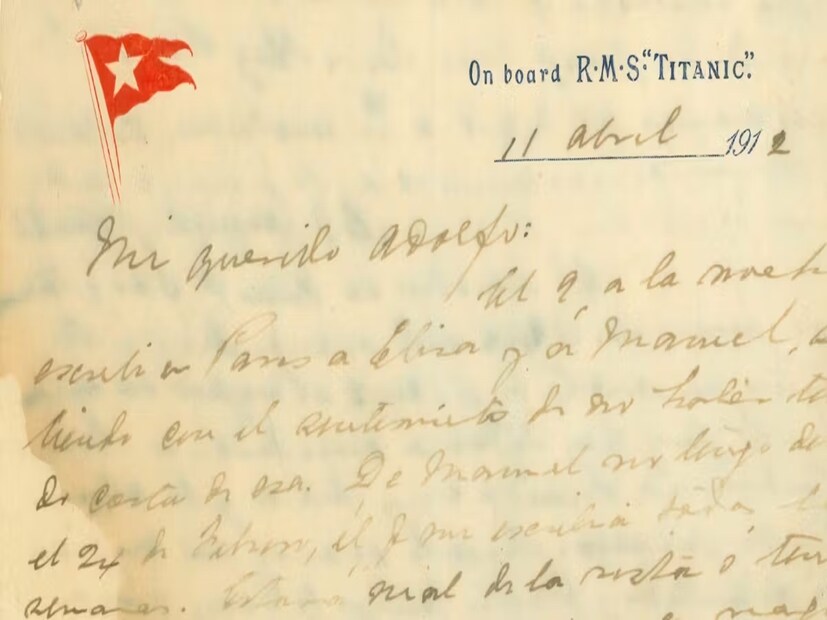 On board R·M·S·“TITANIC”.
11 Abril 1912
Mi querido Adolfo:
El 9 a la noch
escribi en Paris a Elisa y á Manuel,
con el sentimiento de no haber
do carta de esa. De Manuel no tengo
el 24 de Febrero, él me escribia todas
semanas. Estará mal de la vista ó